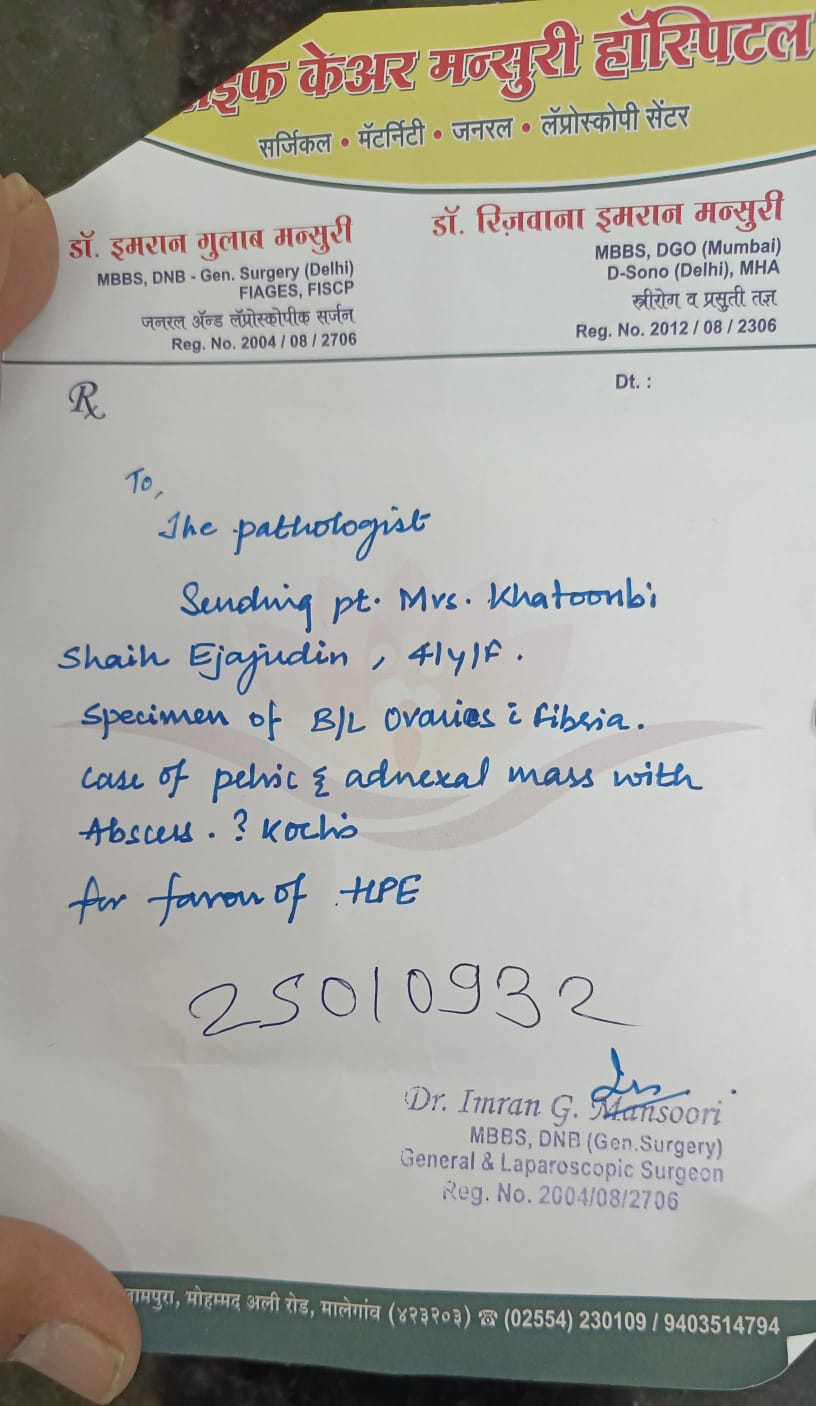 केअर मन्सुरी हॉस्पिटल
सर्जिकल • मॅटर्निटी • जनरल • लॅप्रोस्कोपी सेंटर
डॉ. इमरान गुलाब मन्सुरी
MBBS, DNB - Gen. Surgery (Delhi)
FIAGES, FISCP
जनरल ॲन्ड लॅप्रोस्कोपीक सर्जन
Reg. No. 2004 / 08 / 2706
डॉ. रिज़वाना इमरान मन्सुरी
MBBS, DGO (Mumbai)
D-Sono (Delhi), MHA
स्त्रीरोग व प्रसुती तज्ञ
Reg. No. 2012 / 08 / 2306
Rx
Dt. :
To,
The pathologist
Sending pt. Mrs. Khatoonbi
Shaih Ejajudin, 41y/F.
Specimen of B/L ovaries c̄ fibria.
case of pelvic & adnexal mass with
Abscess. ? Koch's
for favou of HPE
25010932
Dr. Imran G. Mansoori
MBBS, DNB (Gen.Surgery)
General & Laparoscopic Surgeon
Reg. No. 2004/08/2706
मोहम्मद अली रोड, मालेगांव (४२३२०३) ☎ (02554) 230109 / 9403514794